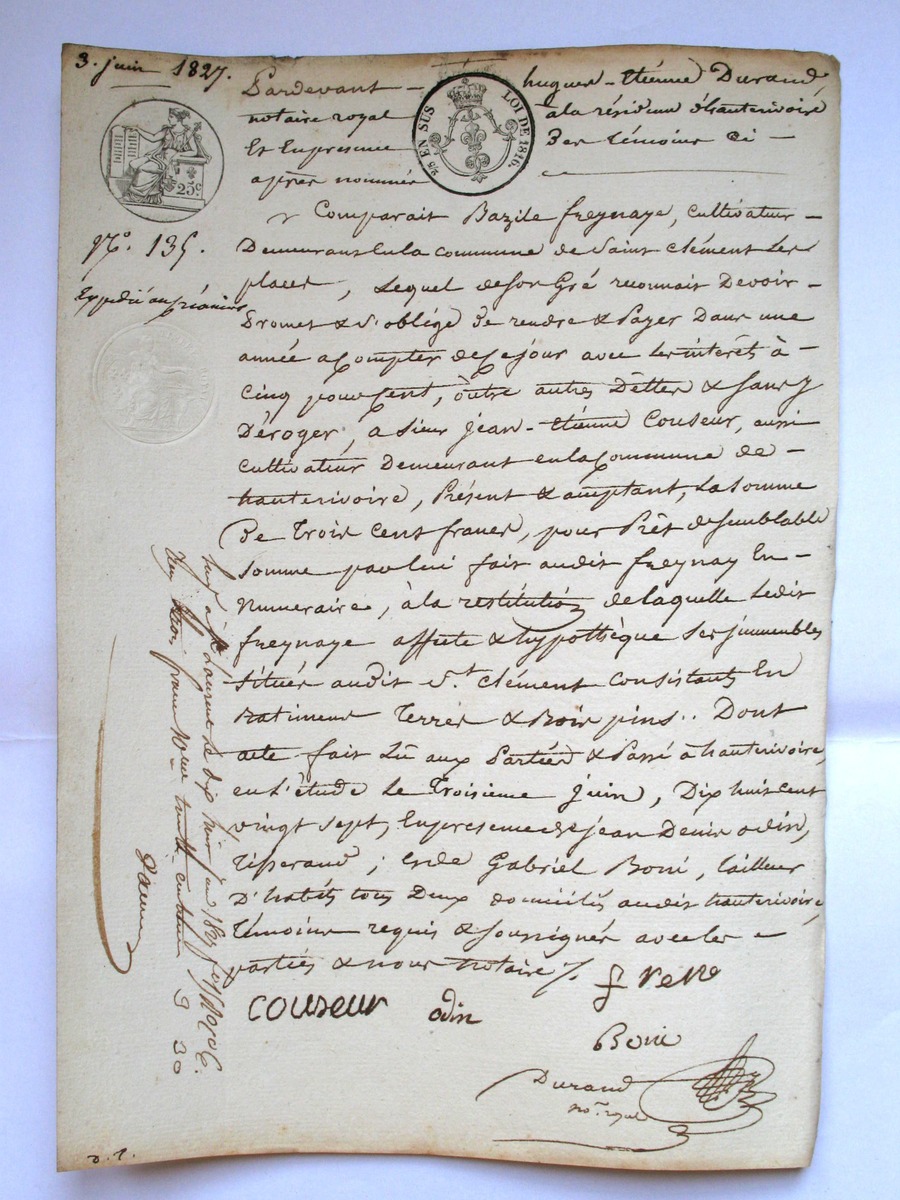 3. juin 1827.
Pardevant - hugues - Etiénne Durand,
notaire royal à la résidence d'hauterivoire
Et Enpresence Des témoins Ci -
après nommés
25 EN SUS LOI DE 1816.
25c.
Comparait Bazile freynaye, cultivateur -
N.o 135.
Demeurant Enla commune de Saint Clément les
places, Lequel deson Gré reconnait Devoir -
Expedié au créancier
Promet & s'oblige De rendre & Payer Dans une
année a Compter de Ce jour avec les interêts à -
Cinq pour Cent, outre autres Dettes & sans y
Déroger, a sieur jean - Etiénne Couseur, aussi
Cultivateur Demeurant en la Commune de -
hauterivoire, Présent & acceptant, La somme
De Trois Cent francs, pour Prêt de semblable
somme par lui fait audit freynay En -
Numeraire, à la restitution de laquelle Ledit
freynaye affecte & hypothèque ses jmmeubles
situés audit St. Clément Consistants En
Batiments Terres & Bois pins.. Dont
acte fait Lû aux Partiés & Passé à hauterivoire,
en L'étude Le Troisieme juin, Dix huit cent
vingt sept, Enpresence de jean Denis odin,
Tisserand, et de Gabriel Boni, tailleur
D'habits tous Deux domiciliés audit hauterivoire,
témoins requis & soussignés avec les -
partiés & nous notaire /.
freNe
COUSEUR odin
Boni
Durand
no.re royal
à St Laurent le dix huit juin 1827
trois francs
30